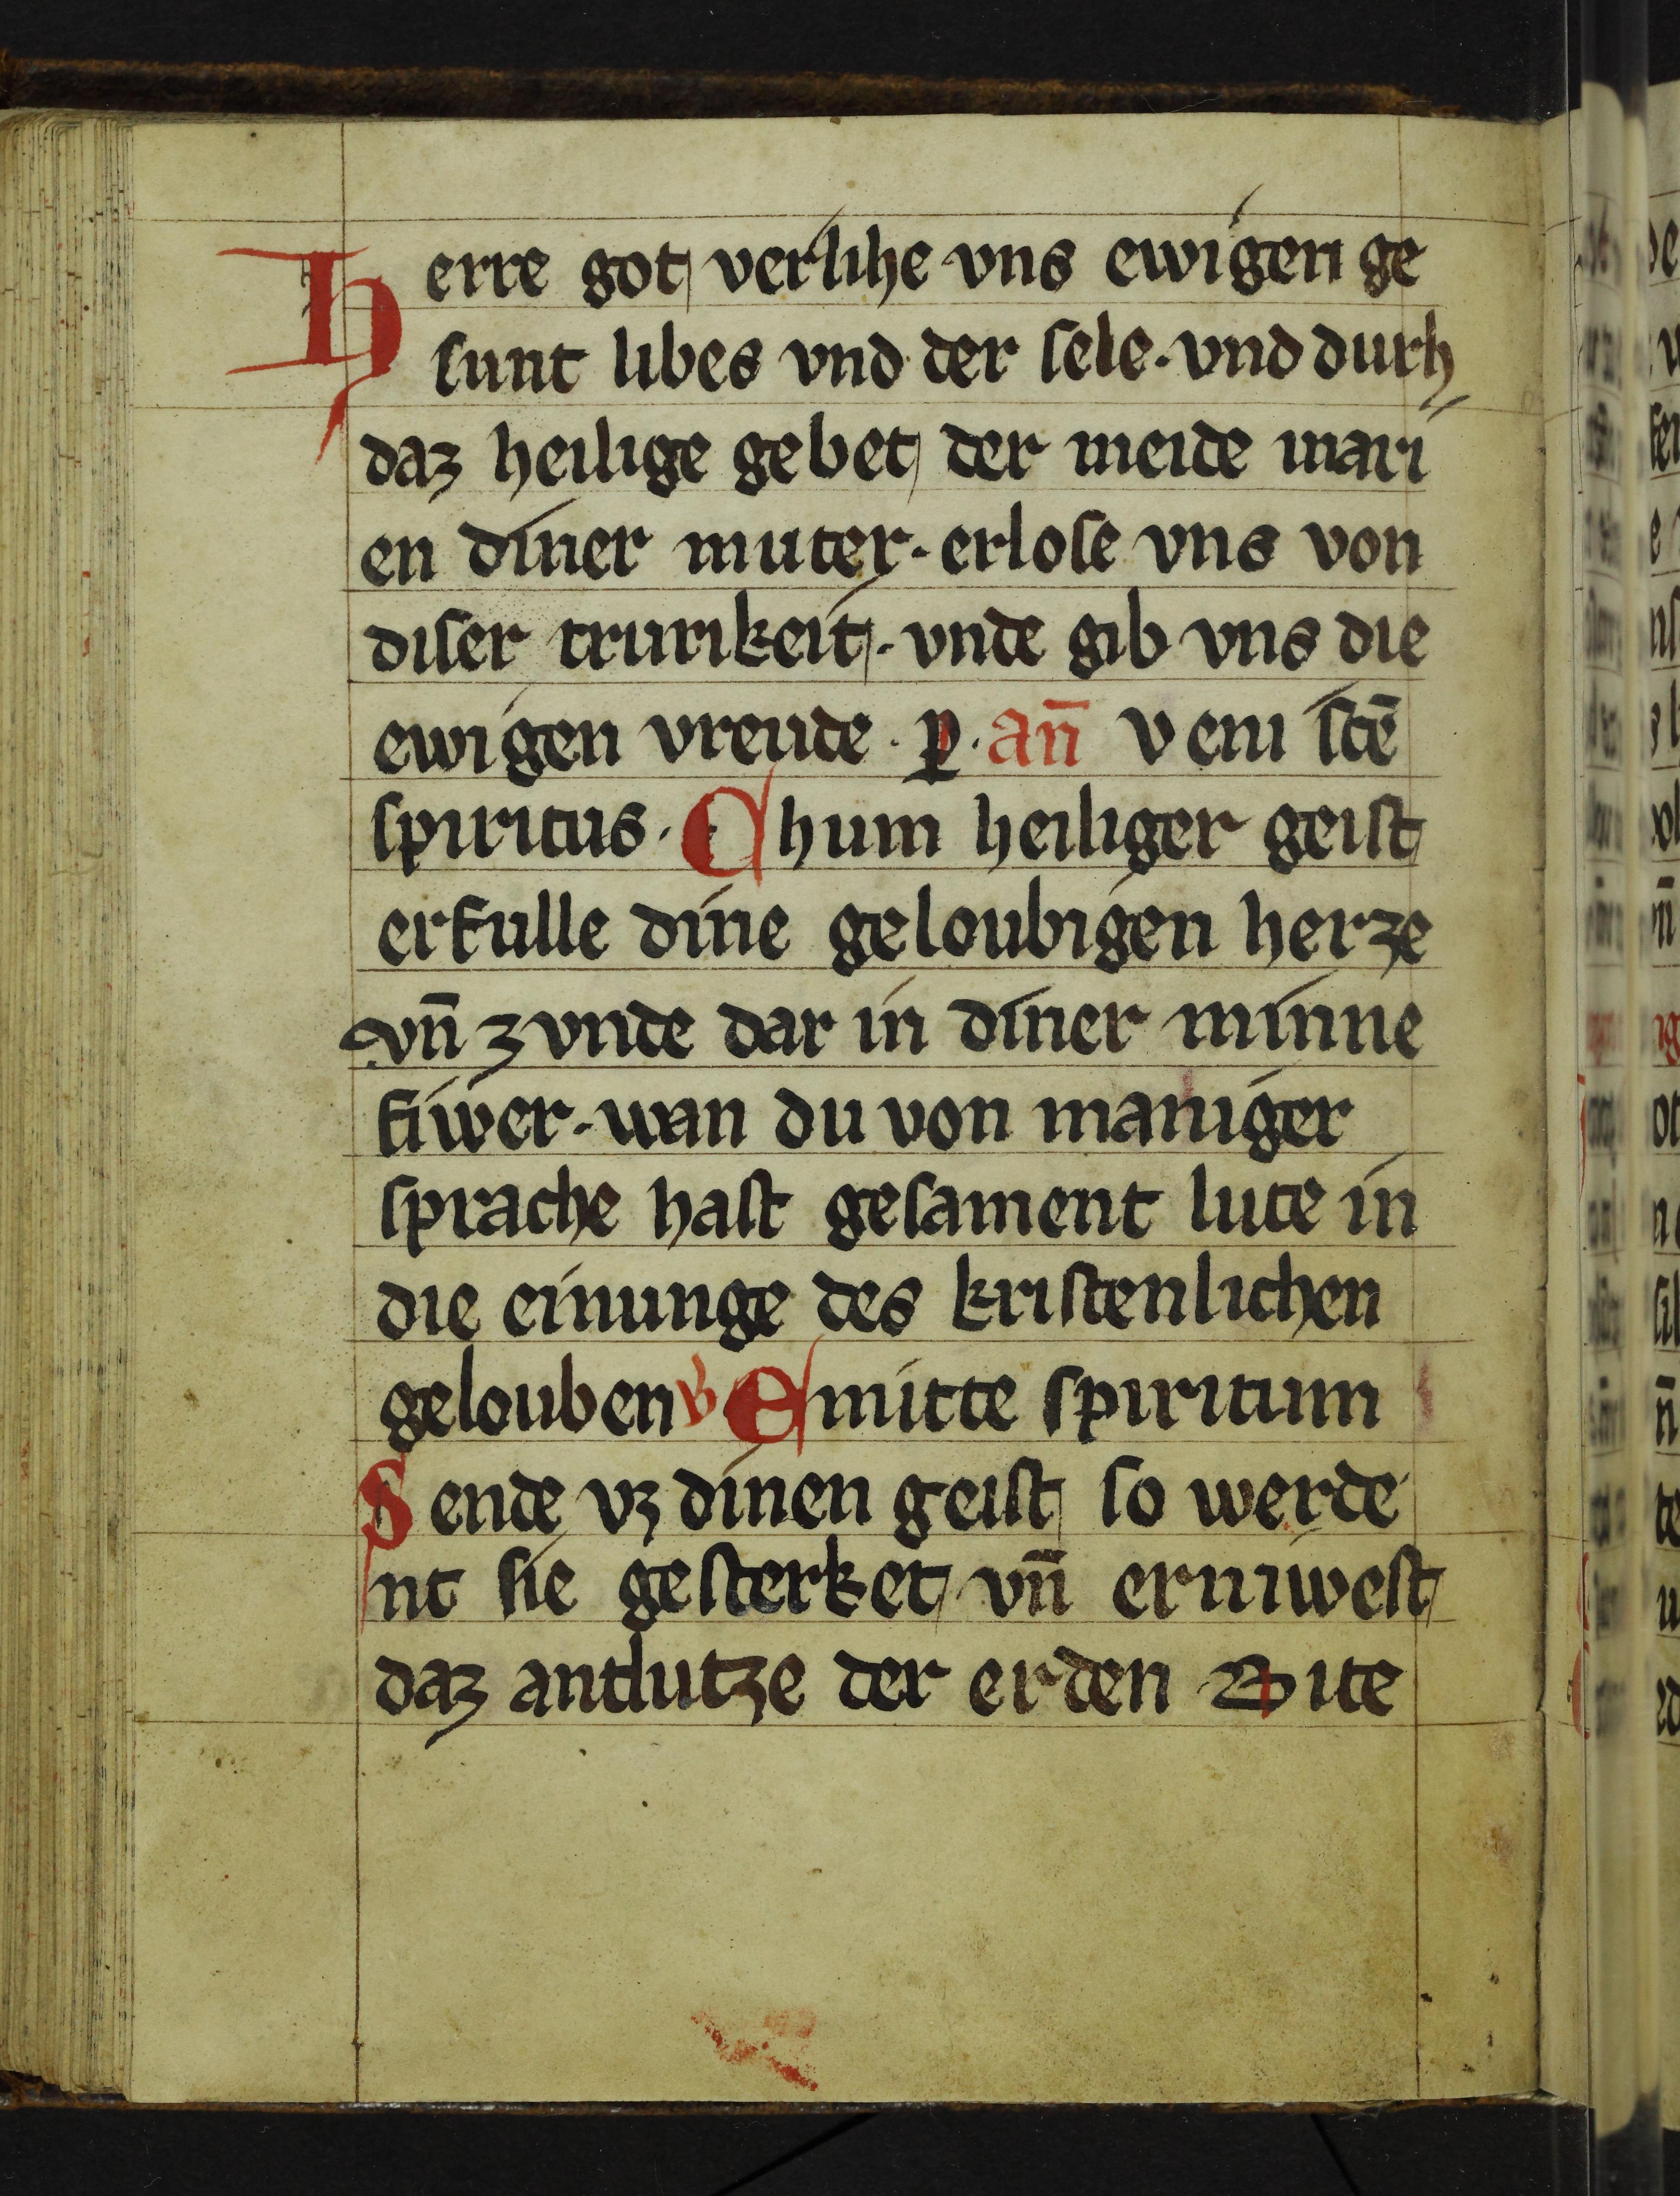 Herre got verlihe vns ewigen ge
sunt libes vnd der sele · vnd durh
daz heilige gebet der meide mari
en diner muter · erlose vns von
diser trurikeit · vnde gib vns die
ewigen vreude · ꝑ · an̄ Veni sc̄e
spiritus · Chum heiliger geist
erfulle dine geloubigen herze
vn̄ zvnde dar in diner minne
fiwer · wan du von maniger
sprache hast gesament lute in
die einunge des kristenlichen
gelouben ꝟ Emitte spiritum
Sende vz dinen geist so werde
nt sie gesterket vn̄ erniwest
daz antlutze der erden Bite